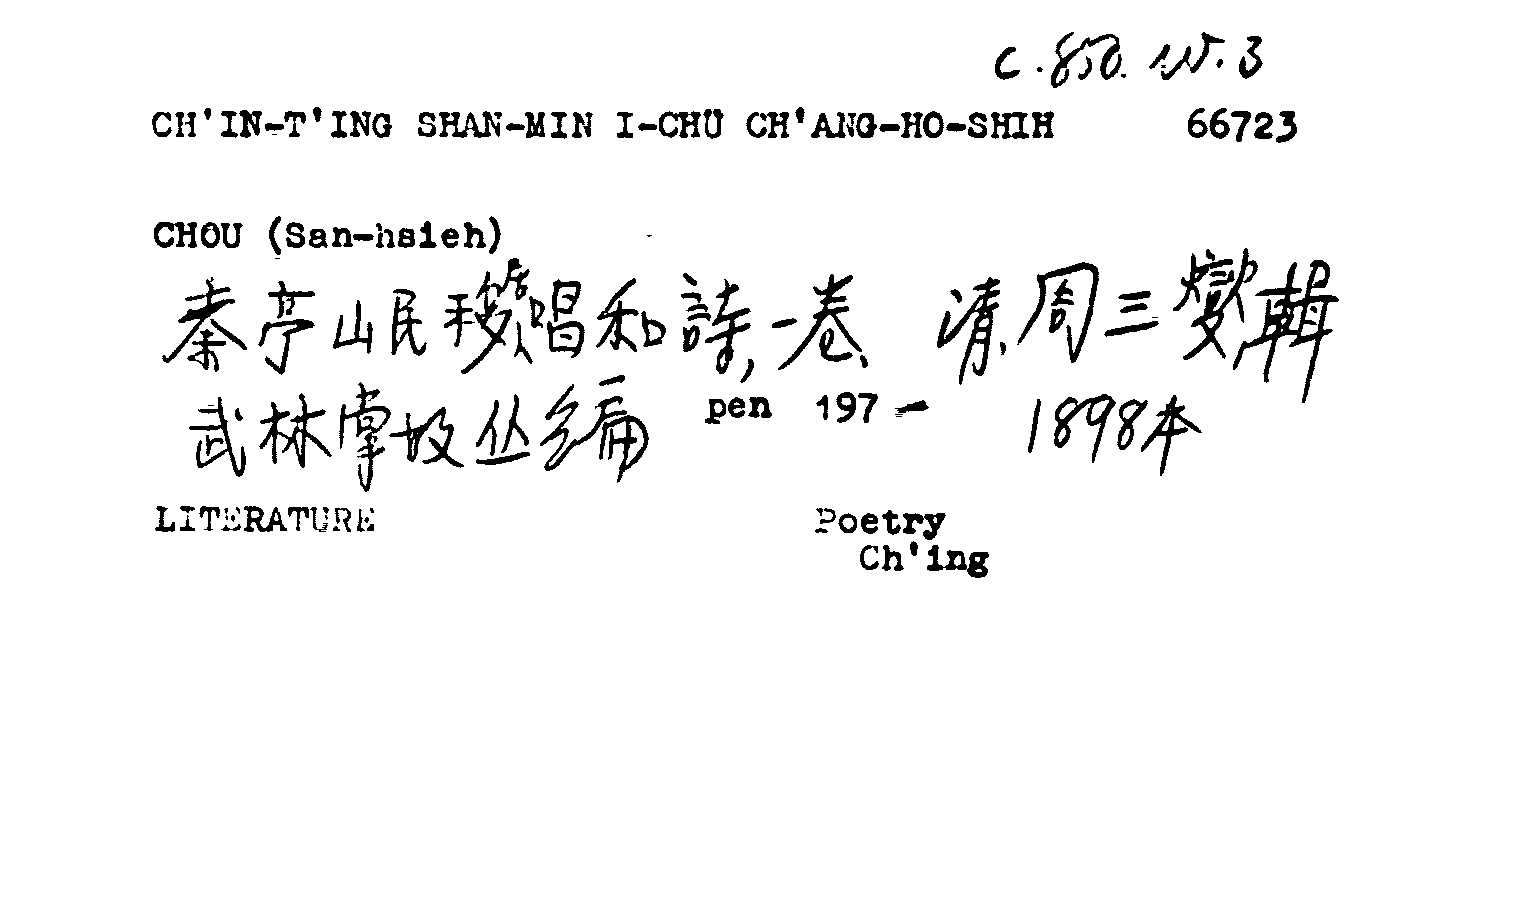 C.850. w.3
CH'IN-T'ING SHAN-MIN I-CHÜ CH'ANG-HO-SHIH 66723
CHOU (San-hsieh)
秦亭山民移居唱和詩,一卷 清.周三燮輯
武林掌故丛编 pen 197 - 1898本
LITERATURE Poetry
Ch'ing